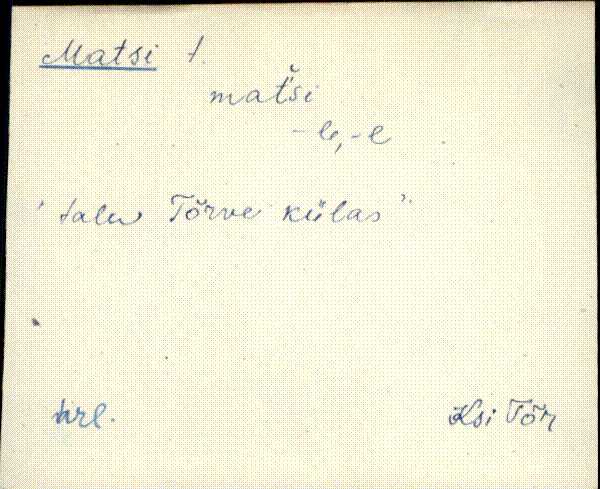 Matsi t.
mat'ši
-le, -l
"talu Tõrve külas"
krl.
Ksi Tõr